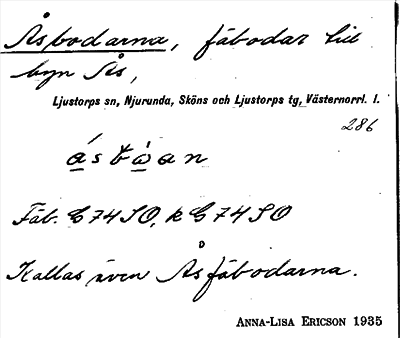 Åsbodarna, fäbodar till
byn Ås,
Ljustorps sn, Njurunda, Sköns och Ljustorps tg, Västernorrl. l.
286
Fäb. G74SO, k G74SO
Kallas även Åsfäbodarna.
ANNA-LISA ERICSON 1935